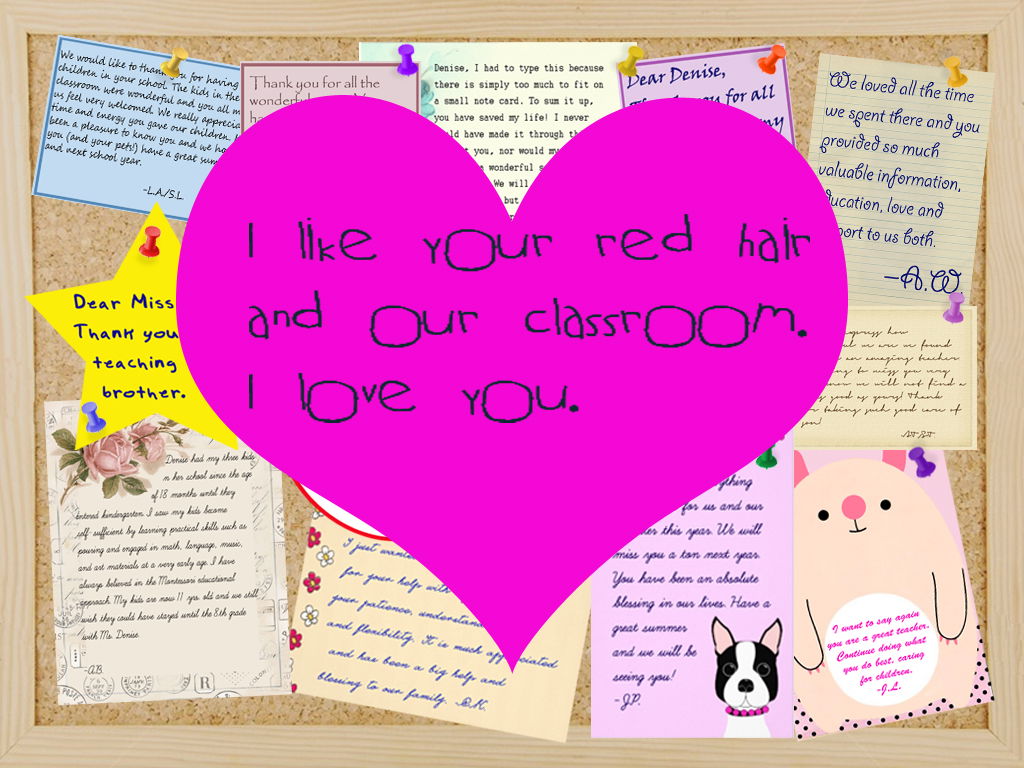 We would like to thank you for having
children in your school. The kids in the
classroom were wonderful and you all m
us feel very welcomed. We really apprecia
time and energy you gave our children.
been a pleasure to know you and we ho
you (and your pets!) have a great sum
and next school year.
-L.A/S.L
Thank you for all the
wonderful
Denise, I had to type this because
there is simply too much to fit on
a small note card. To sum it up,
you have saved my life! I never
have made it through th
you, nor would my
wonderful s
We will
but
Dear Denise,
you for all
my
We loved all the time
we spent there and you
provided so much
valuable information,
education, love and
port to us both.
-A.W.
Dear Miss
Thank you
teaching
brother.
I like your red hair
and our classroom.
I love you.
express how
we are we found
an amazing teacher
to miss you very
now we will not find a
good as yours! Thank
taking such good care of
son!
Denise had my three kids
in her school since the age
of 18 months until they
entered kindergarten. I saw my kids become
self-sufficient by learning practical skills such as
pouring and engaged in math, language, music,
and art materials at a very early age. I have
always believed in the Montessori educational
approach. My kids are now 11 yrs old and we still
wish they could have stayed until the 8th grade
with Ms. Denise.
-A.B.
I just wan
for your help with
your patience, understan
and flexibility. It is much appreciated
and has been a big help and
blessing to our family. B.K.
ything
for us and our
this year. We will
miss you a ton next year.
You have been an absolute
blessing in our lives. Have a
great summer
and we will be
seeing you!
-J.P.
I want to say again
you are a great teacher.
Continue doing what
you do best, caring
for children.
-J.L.